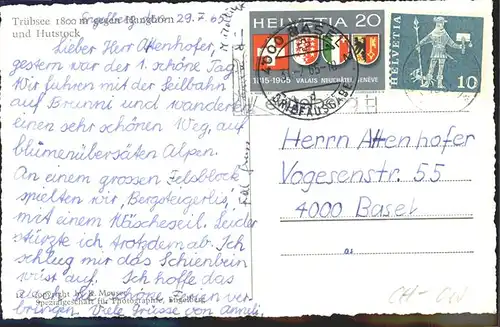 Trübsee 1800 m gegen Hanghorn
und Hutstock
Engelberg, den 29.7.65
Lieber Herr Attenhofer,
gestern war der 1. schöne Tag.
Wir fuhren mit der Seilbahn
auf Brunni und wanderten
einen sehr schönen Weg, auf
blumenübersäten Alpen.
An einem grossen Felsblock
spielten wir „Bergsteigerlis",
mit einem Wäscheseil. Leider
stürzte ich trotzdem ab. Ich
schlug mir das Schienbein
wüst auf. Ich hoffe das
auch Sie schöne Ferien ver-
bringen. Viele Grüsse von
Copyright by
Spezialgeschäft für Photographie, Engelberg
HELVETIA 20
1815-1965 VALAIS NEUCHÂTEL GENÈVE
HELVETIA
10
BASEL
BRIEFAUSGABE
Herrn Attenhofer
Vogesenstr. 55
4000 Basel
CH-OW